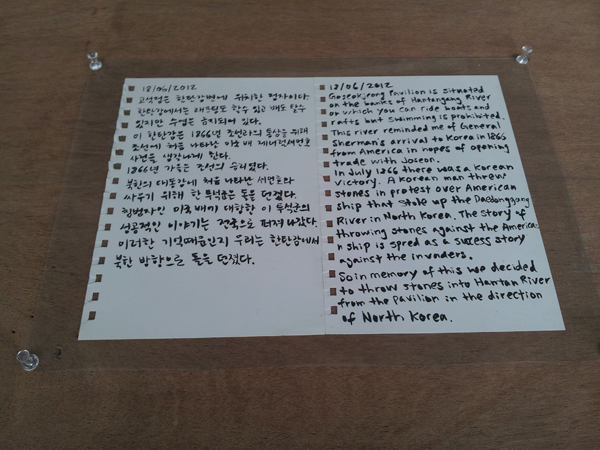 18/06/2012
고석정은 한탄강변에 위치한 정자이다
한탄강에서는 래프팅도 할수 있고 배도 탈수
있지만 수영은 금지되어 있다.
이 한탄강은 1866년 조선과의 통상을 위해
조선에 처음 나타난 미국 배 제너럴셔먼호
사건을 생각나게 한다.
1866년 가을은 조선의 승리였다.
북한의 대동강에 처음 나타난 셔먼호와
싸우기 위해 한 투석꾼은 돌을 던졌다.
침범자인 미국 배에 대항한 이 투석군의
성공적인 이야기는 전국으로 퍼져 나갔다.
이러한 기억때문인지 우리는 한탄강에서
북한 방향으로 돌을 던졌다.
18/06/2012
Goseokjeong Pavilion is situated
on the banks of Hantangang River
or which you can ride boats and
rafts but swimming is prohibited.
This river reminded me of General
Sherman's arrival to Korea in 1866
from America in hopes of opening
trade with Joseon.
In July 1866 there was a Korean
victory. A Korean man threw
stones in protest over American
ship that stole up the Daedonggang
River in North Korea. The story of
throwing stones against the America
n ship is spred as a success story
against the invaders.
So in memory of this we decided
to throw stones into Hantan River
from the pavilion in the direction
of North Korea.